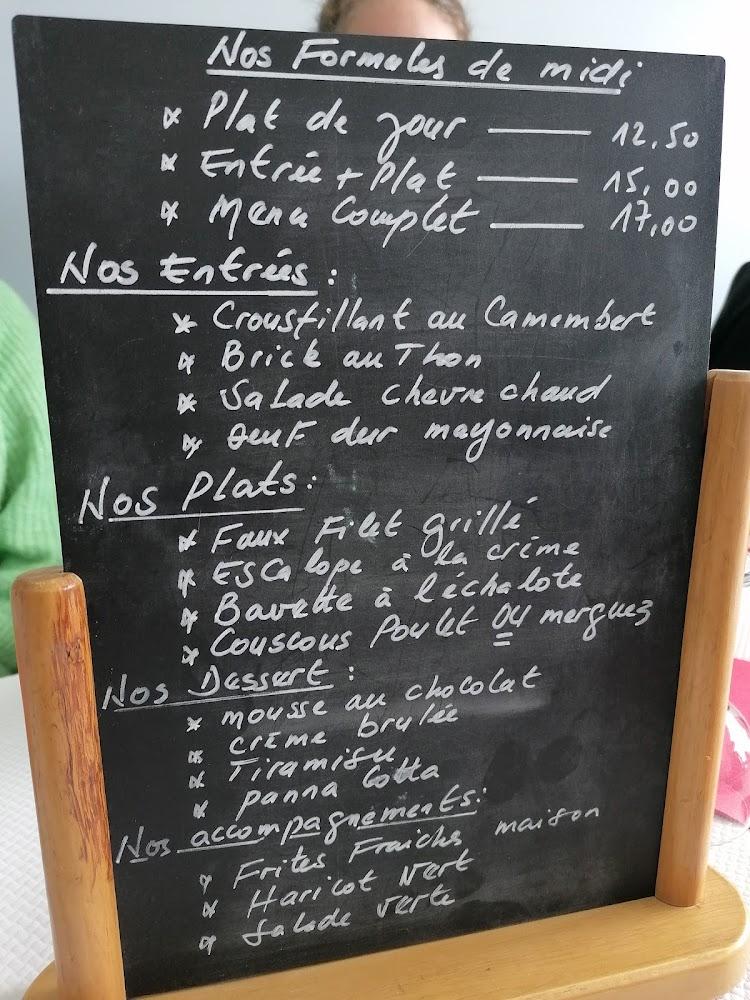 Nos Formules de midi
* Plat de jour — 12.50
* Entrée + Plat — 15,00
* Menu Complet — 17,00
Nos Entrées :
* Croustillant au Camembert
* Brick au Thon
* Salade chevre chaud
* Oeuf dur mayonnaise
Nos Plats :
* Faux Filet grillé
* Escalope à la crème
* Bavette à l'échalote
* Couscous Poulet ou merguez
Nos Dessert :
* mousse au chocolat
* crème brulée
* Tiramisu
* panna Cotta
Nos accompagnements :
* Frites Fraichs maison
* Haricot Vert
* Salade verte